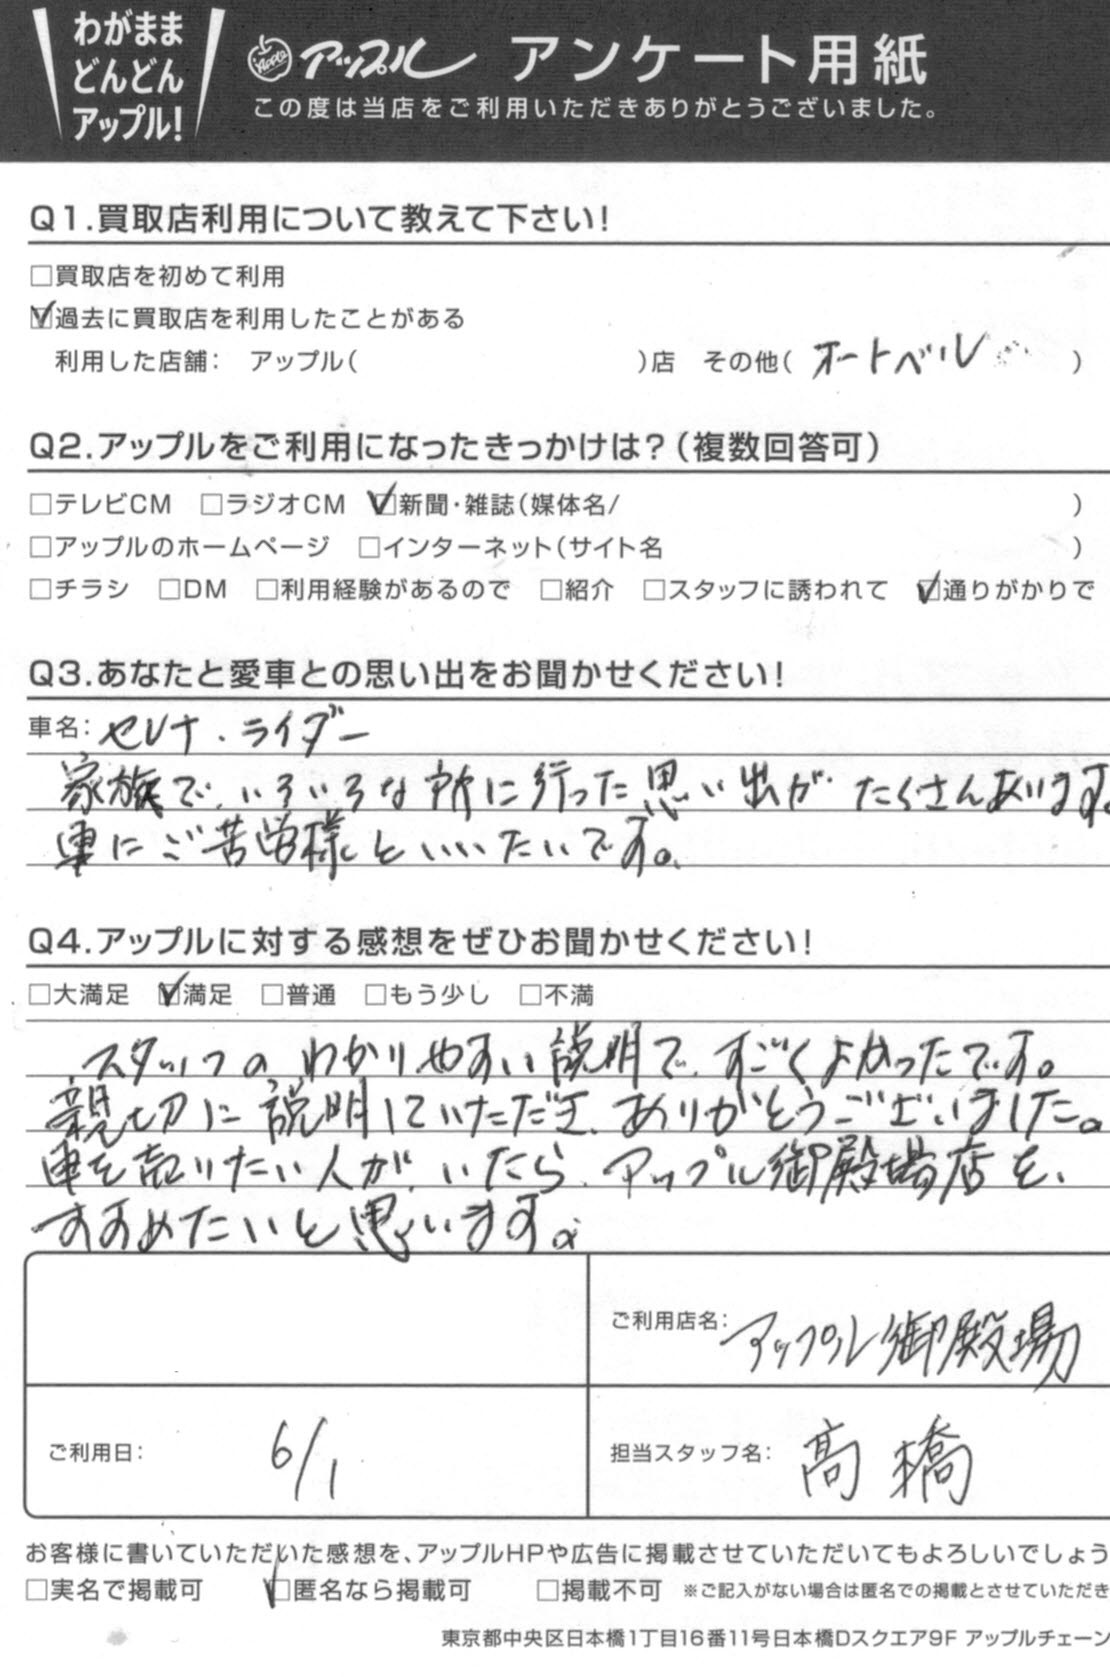 わがまま
どんどん
アップル!
Apple アップル アンケート用紙
この度は当店をご利用いただきありがとうございました。
Q1.買取店利用について教えて下さい!
□買取店を初めて利用
☑過去に買取店を利用したことがある
利用した店舗: アップル( )店 その他( オートベル )
Q2.アップルをご利用になったきっかけは?(複数回答可)
□テレビCM □ラジオCM ☑新聞・雑誌(媒体名/ )
□アップルのホームページ □インターネット(サイト名 )
□チラシ □DM □利用経験があるので □紹介 □スタッフに誘われて ☑通りがかりで
Q3.あなたと愛車との思い出をお聞かせください!
車名: セレナ.ライダー
家族で、いろいろな所に行った思い出が たくさんあります。
車にご苦労様といいたいです。
Q4.アップルに対する感想をぜひお聞かせください!
□大満足 ☑満足 □普通 □もう少し □不満
スタッフの わかりやすい説明で、すごくよかったです。
親切に説明していただき、ありがとうございました。
車を売りたい人が、いたら、アップル御殿場店を、
すすめたいと思います。
ご利用店名: アップル御殿場
ご利用日: 6/1
担当スタッフ名: 髙橋
お客様に書いていただいた感想を、アップルHPや広告に掲載させていただいてもよろしいでしょう
□実名で掲載可 ☑匿名なら掲載可 □掲載不可 ※ご記入がない場合は匿名での掲載とさせていただき
東京都中央区日本橋1丁目16番11号日本橋Dスクエア9F アップルチェーン